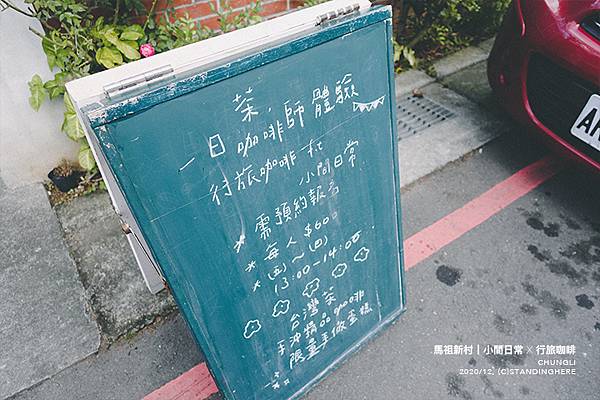 茶.
一日咖啡師體驗
行旅咖啡 at
小間日常
* 需預約報名
* 每人$600
* (五)～(四)
13:00-14:00.
台灣茶
手沖精品咖啡
限量手做蛋糕
馬祖新村 | 小間日常 × 行旅咖啡
CHUNGLI
2020/12, (C)STANDINGHERE